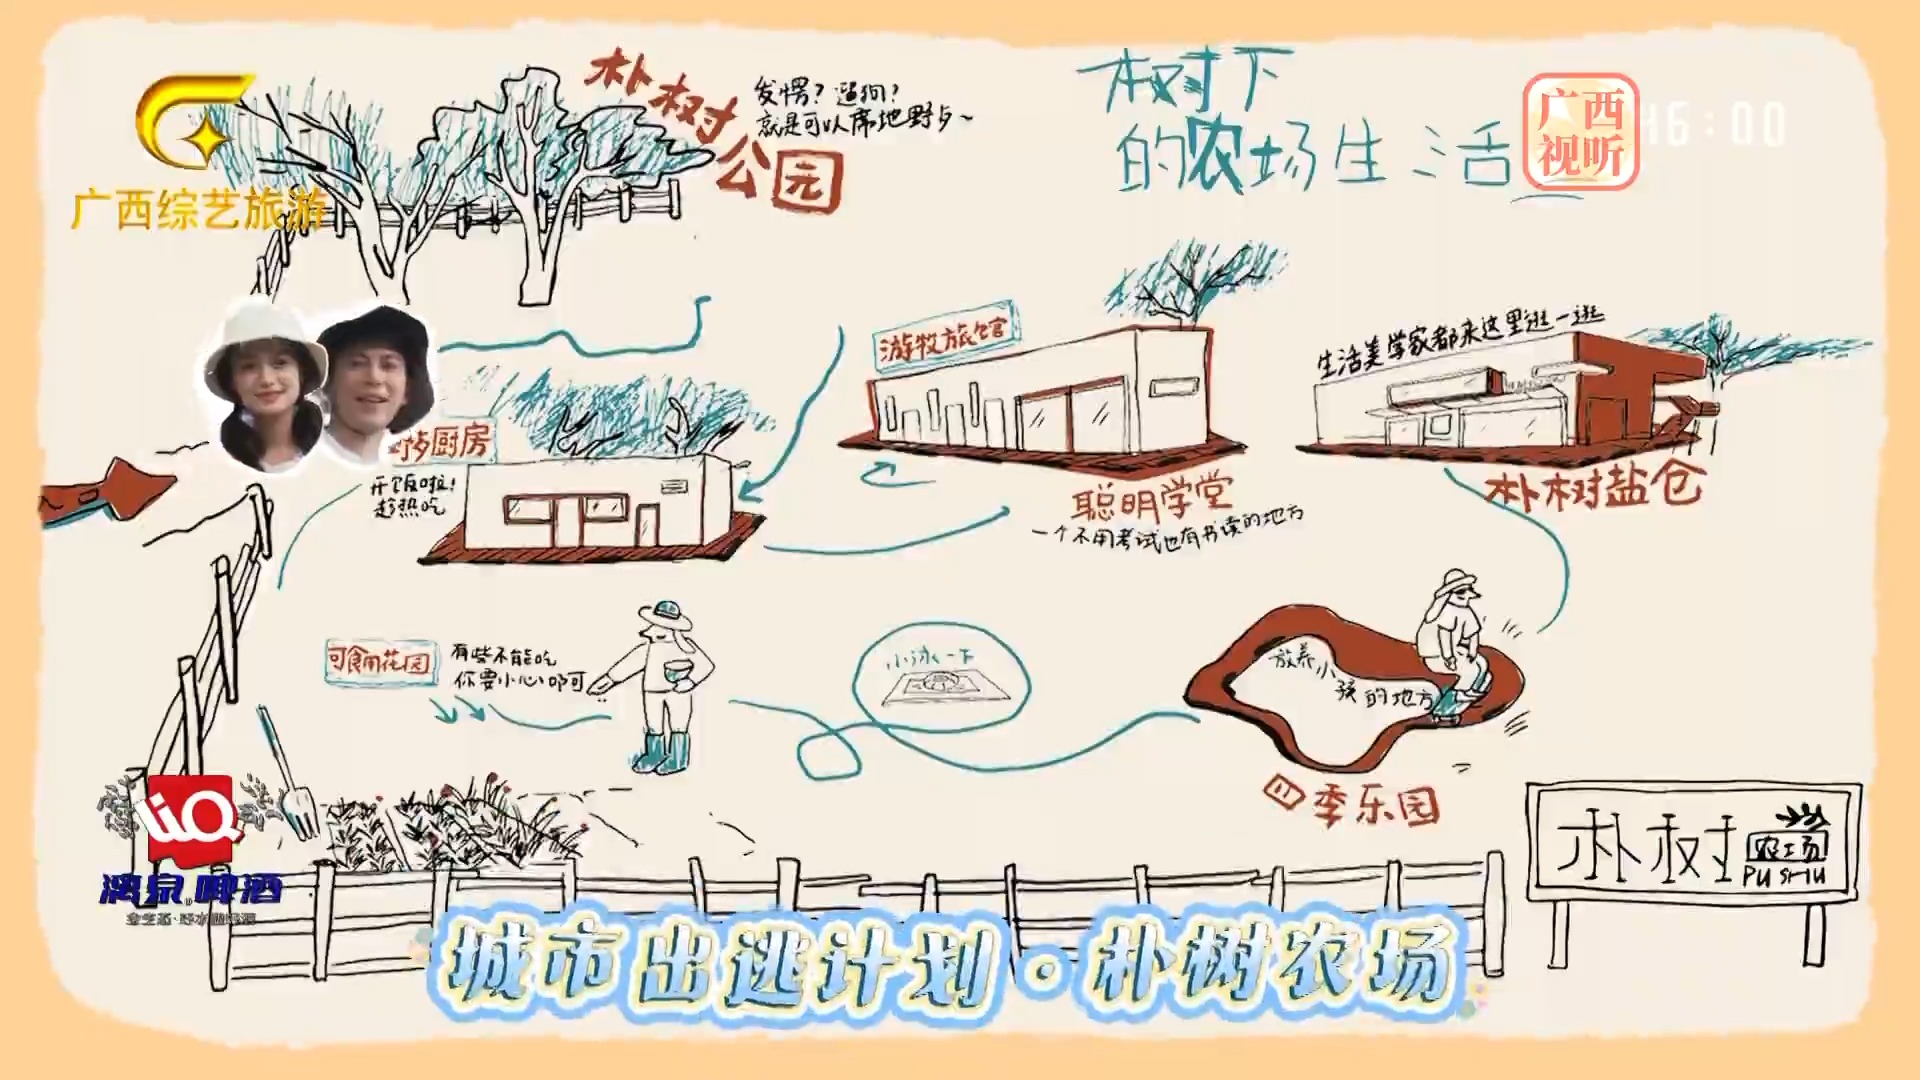 朴树公园
发愣？遛狗？
就是可以席地野歺~
树下
的农场生活
广西
视听
46:00
广西综艺旅游
游牧旅馆
生活美学家都来这里逛一逛
野歺厨房
开饭啦!
趁热吃
聪明学堂
一个不用考试也有书读的地方
朴树盐仓
可食用花园
有些不能吃
你要小心叩可
小泳一下
放养小孩的地方
四季乐园
LiQ
漓泉®啤酒
朴树农场
PU SHU
城市出逃计划·朴树农场